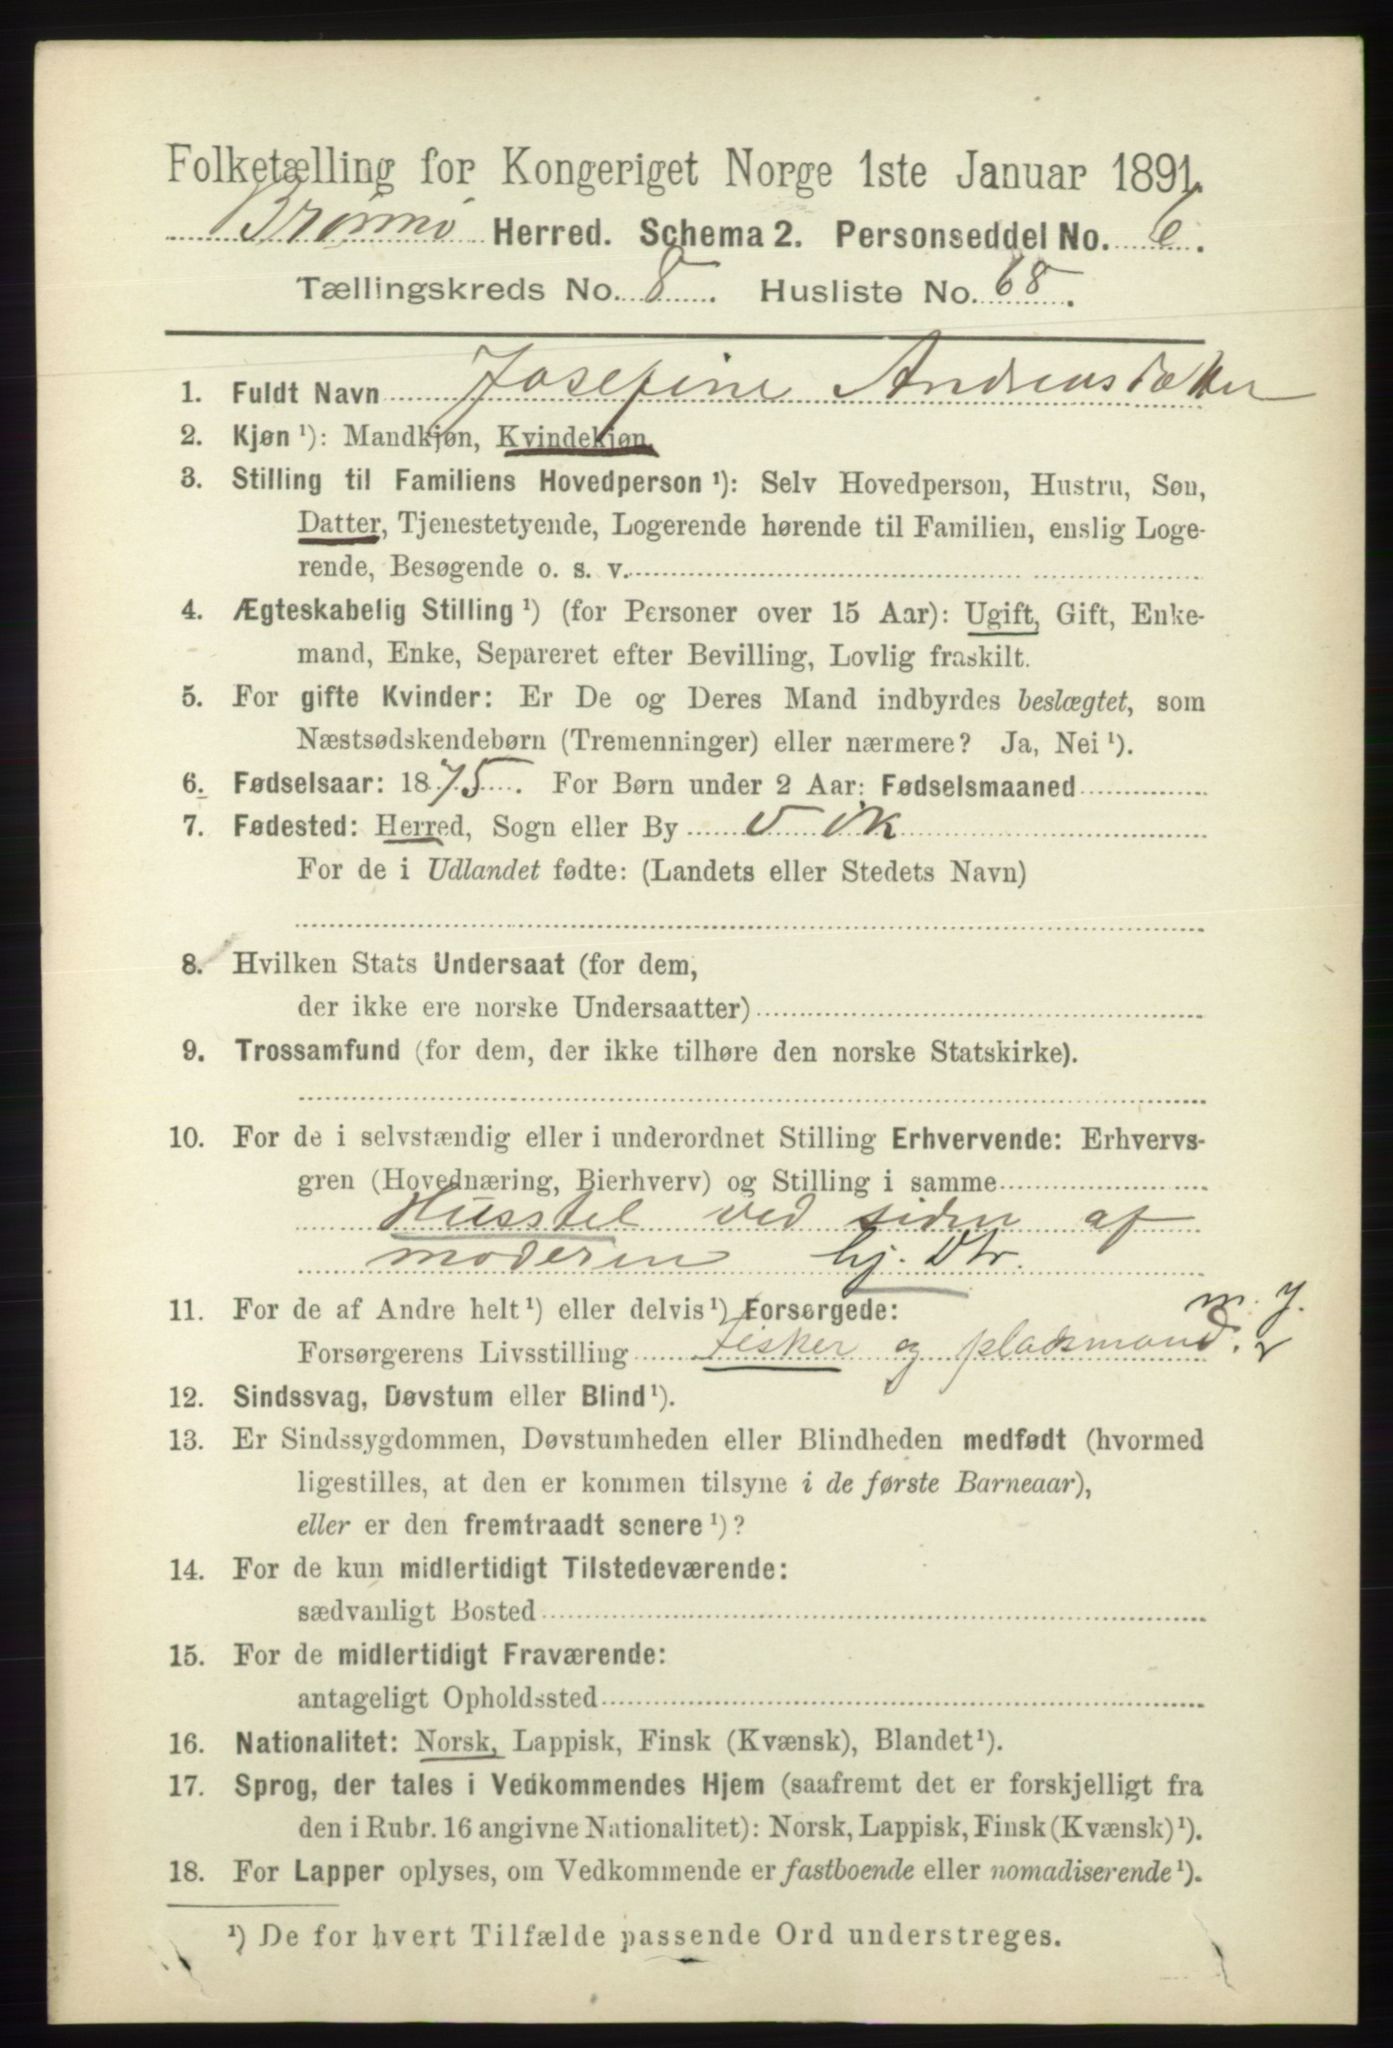 Folketælling for Kongeriget Norge 1ste Januar 1891.
Brønnø Herred. Schema 2. Personseddel No. 6.
Tællingskreds No. 8. Husliste No. 68.
1. Fuldt Navn Josefine Andreasdatter
2. Kjøn ¹): Mandkjøn, Kvindekjøn.
3. Stilling til Familiens Hovedperson ¹): Selv Hovedperson, Hustru, Søn,
Datter, Tjenestetyende, Logerende hørende til Familien, enslig Loge-
rende, Besøgende o. s. v.
4. Ægteskabelig Stilling ¹) (for Personer over 15 Aar): Ugift, Gift, Enke-
mand, Enke, Separeret efter Bevilling, Lovlig fraskilt.
5. For gifte Kvinder: Er De og Deres Mand indbyrdes beslægtet, som
Næstsødskendebørn (Tremenninger) eller nærmere? Ja, Nei ¹).
6. Fødselsaar: 1875. For Børn under 2 Aar: Fødselsmaaned
7. Fødested: Herred, Sogn eller By Vik
For de i Udlandet fødte: (Landets eller Stedets Navn)
8. Hvilken Stats Undersaat (for dem,
der ikke ere norske Undersaatter)
9. Trossamfund (for dem, der ikke tilhøre den norske Statskirke).
10. For de i selvstændig eller i underordnet Stilling Erhvervende: Erhvervs-
gren (Hovednæring, Bierhverv) og Stilling i samme
Husstel ved siden af
moderen hj. Dtr.
11. For de af Andre helt ¹) eller delvis ¹) Forsørgede:
Forsørgerens Livsstilling Fisker og pladsmand.
12. Sindssvag, Døvstum eller Blind ¹).
13. Er Sindssygdommen, Døvstumheden eller Blindheden medfødt (hvormed
ligestilles, at den er kommen tilsyne i de første Barneaar),
eller er den fremtraadt senere ¹)?
14. For de kun midlertidigt Tilstedeværende:
sædvanligt Bosted
15. For de midlertidigt Fraværende:
antageligt Opholdssted
16. Nationalitet: Norsk, Lappisk, Finsk (Kvænsk), Blandet ¹).
17. Sprog, der tales i Vedkommendes Hjem (saafremt det er forskjelligt fra
den i Rubr. 16 angivne Nationalitet): Norsk, Lappisk, Finsk (Kvænsk) ¹).
18. For Lapper oplyses, om Vedkommende er fastboende eller nomadiserende ¹).
¹) De for hvert Tilfælde passende Ord understreges.